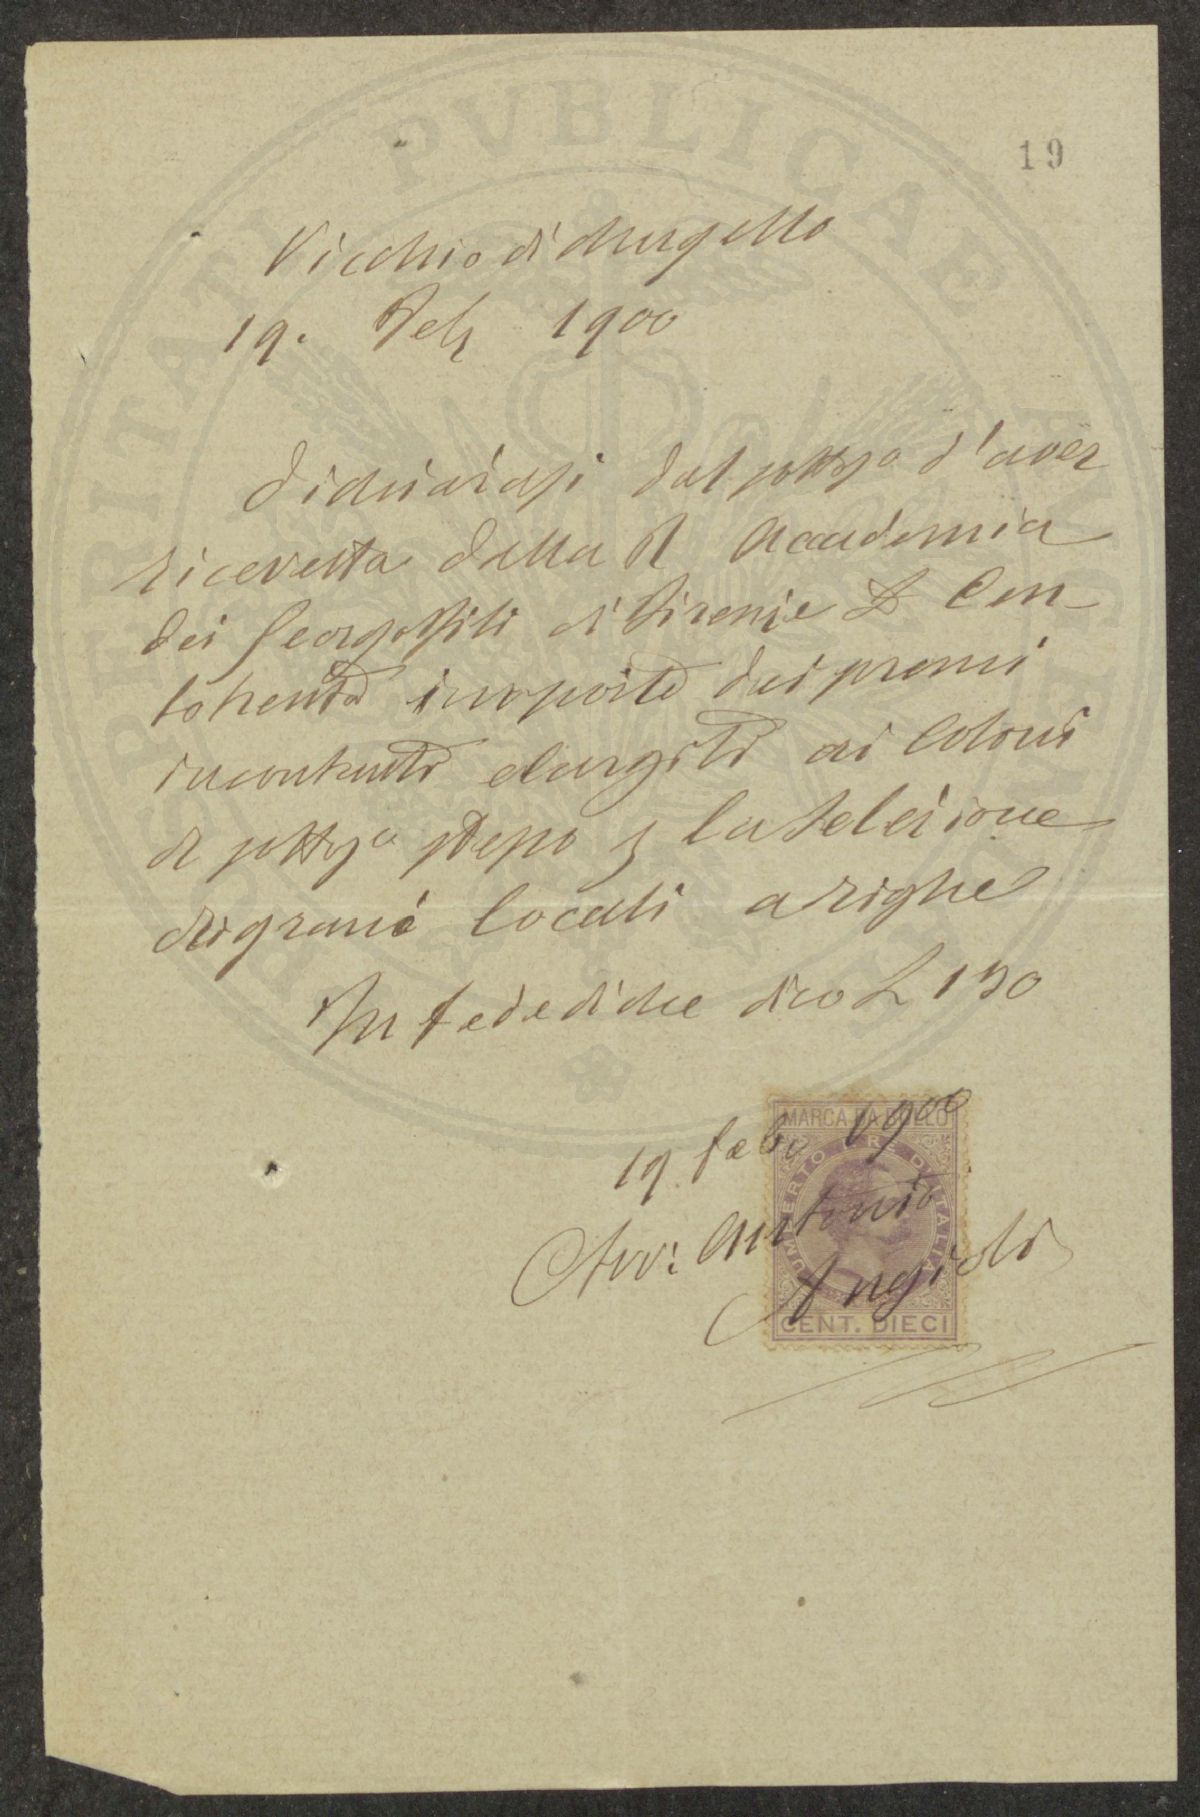 19
Vicchio di Mugello
19. Feb 1900
Dichiarasi dal sottosto d'aver
ricevetta dalla R Accademia
dei Georgofili di Firenze £ Cen
totrenta importo dei premi
incontanti elargiti ai Coloni
di sottosto stesso p la selezione
dei grani locali a righe
In fede di che dico L 130
19 febo 1900
Avv: Antonio
Angioli
MARCA DA BOLLO
UMBERTO I RE D'ITALIA
CENT. DIECI
PROSPERITATI PVBLICAE AVGENDAE